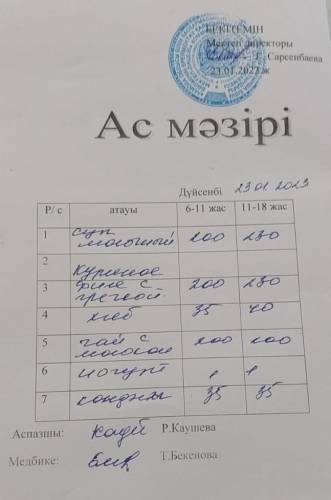 БЕКІТЕМІН
Мектеп директоры
Г. Сарсенбаева
23.01.2023ж
Ас мәзірі
Дүйсенбі 23 01 2023
Р/с атауы 6-11 жас 11-18 жас
1 суп
молочный 200 250
2
куриное
3 филе с 200 250
гречкой
4 хлеб 35 40
5 чай с
молоком 200 200
6 йогурт 1 1
7 35 35
Аспазшы: Р.Каушева
Медбике: Т.Бекенова